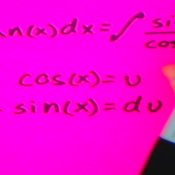 an(x)dx=∫ si
cos
cos(x)=u
sin(x)=du